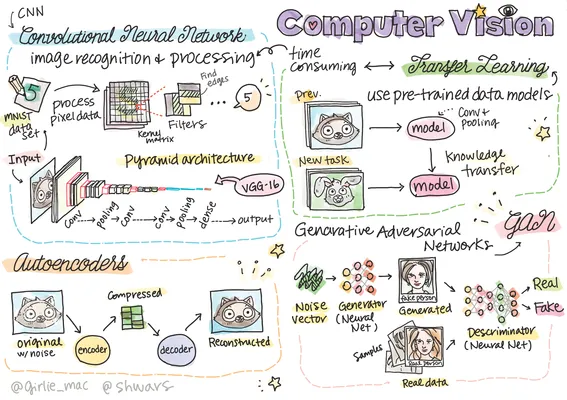 Computer Vision
CNN
Convolutional Neural Network
image recognition & processing
time
consuming
Transfer Learning
MNIST
data
set
5
process
pixel data
Kernel
matrix
Filters
Find
edges
...
5
Input
Pyramid architecture
VGG-16
conv
pooling
conv
conv
pooling
dense
output
use pre-trained data models
prev.
model
conv +
pooling
Knowledge
transfer
New task
model
Autoencoders
original
w/ noise
encoder
Compressed
decoder
Reconstructed
Generative Adversarial
Networks
GAN
Noise
vector
Generator
(Neural
Net)
fake person
Generated
Samples
real person
Real data
Descriminator
(Neural Net)
Real
Fake
@girlie_mac @shwars